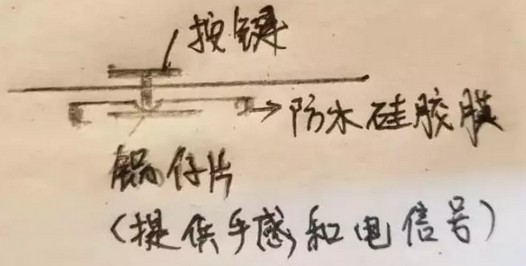 按键
防水硅胶膜
锅仔片
(提供手感和电信号)